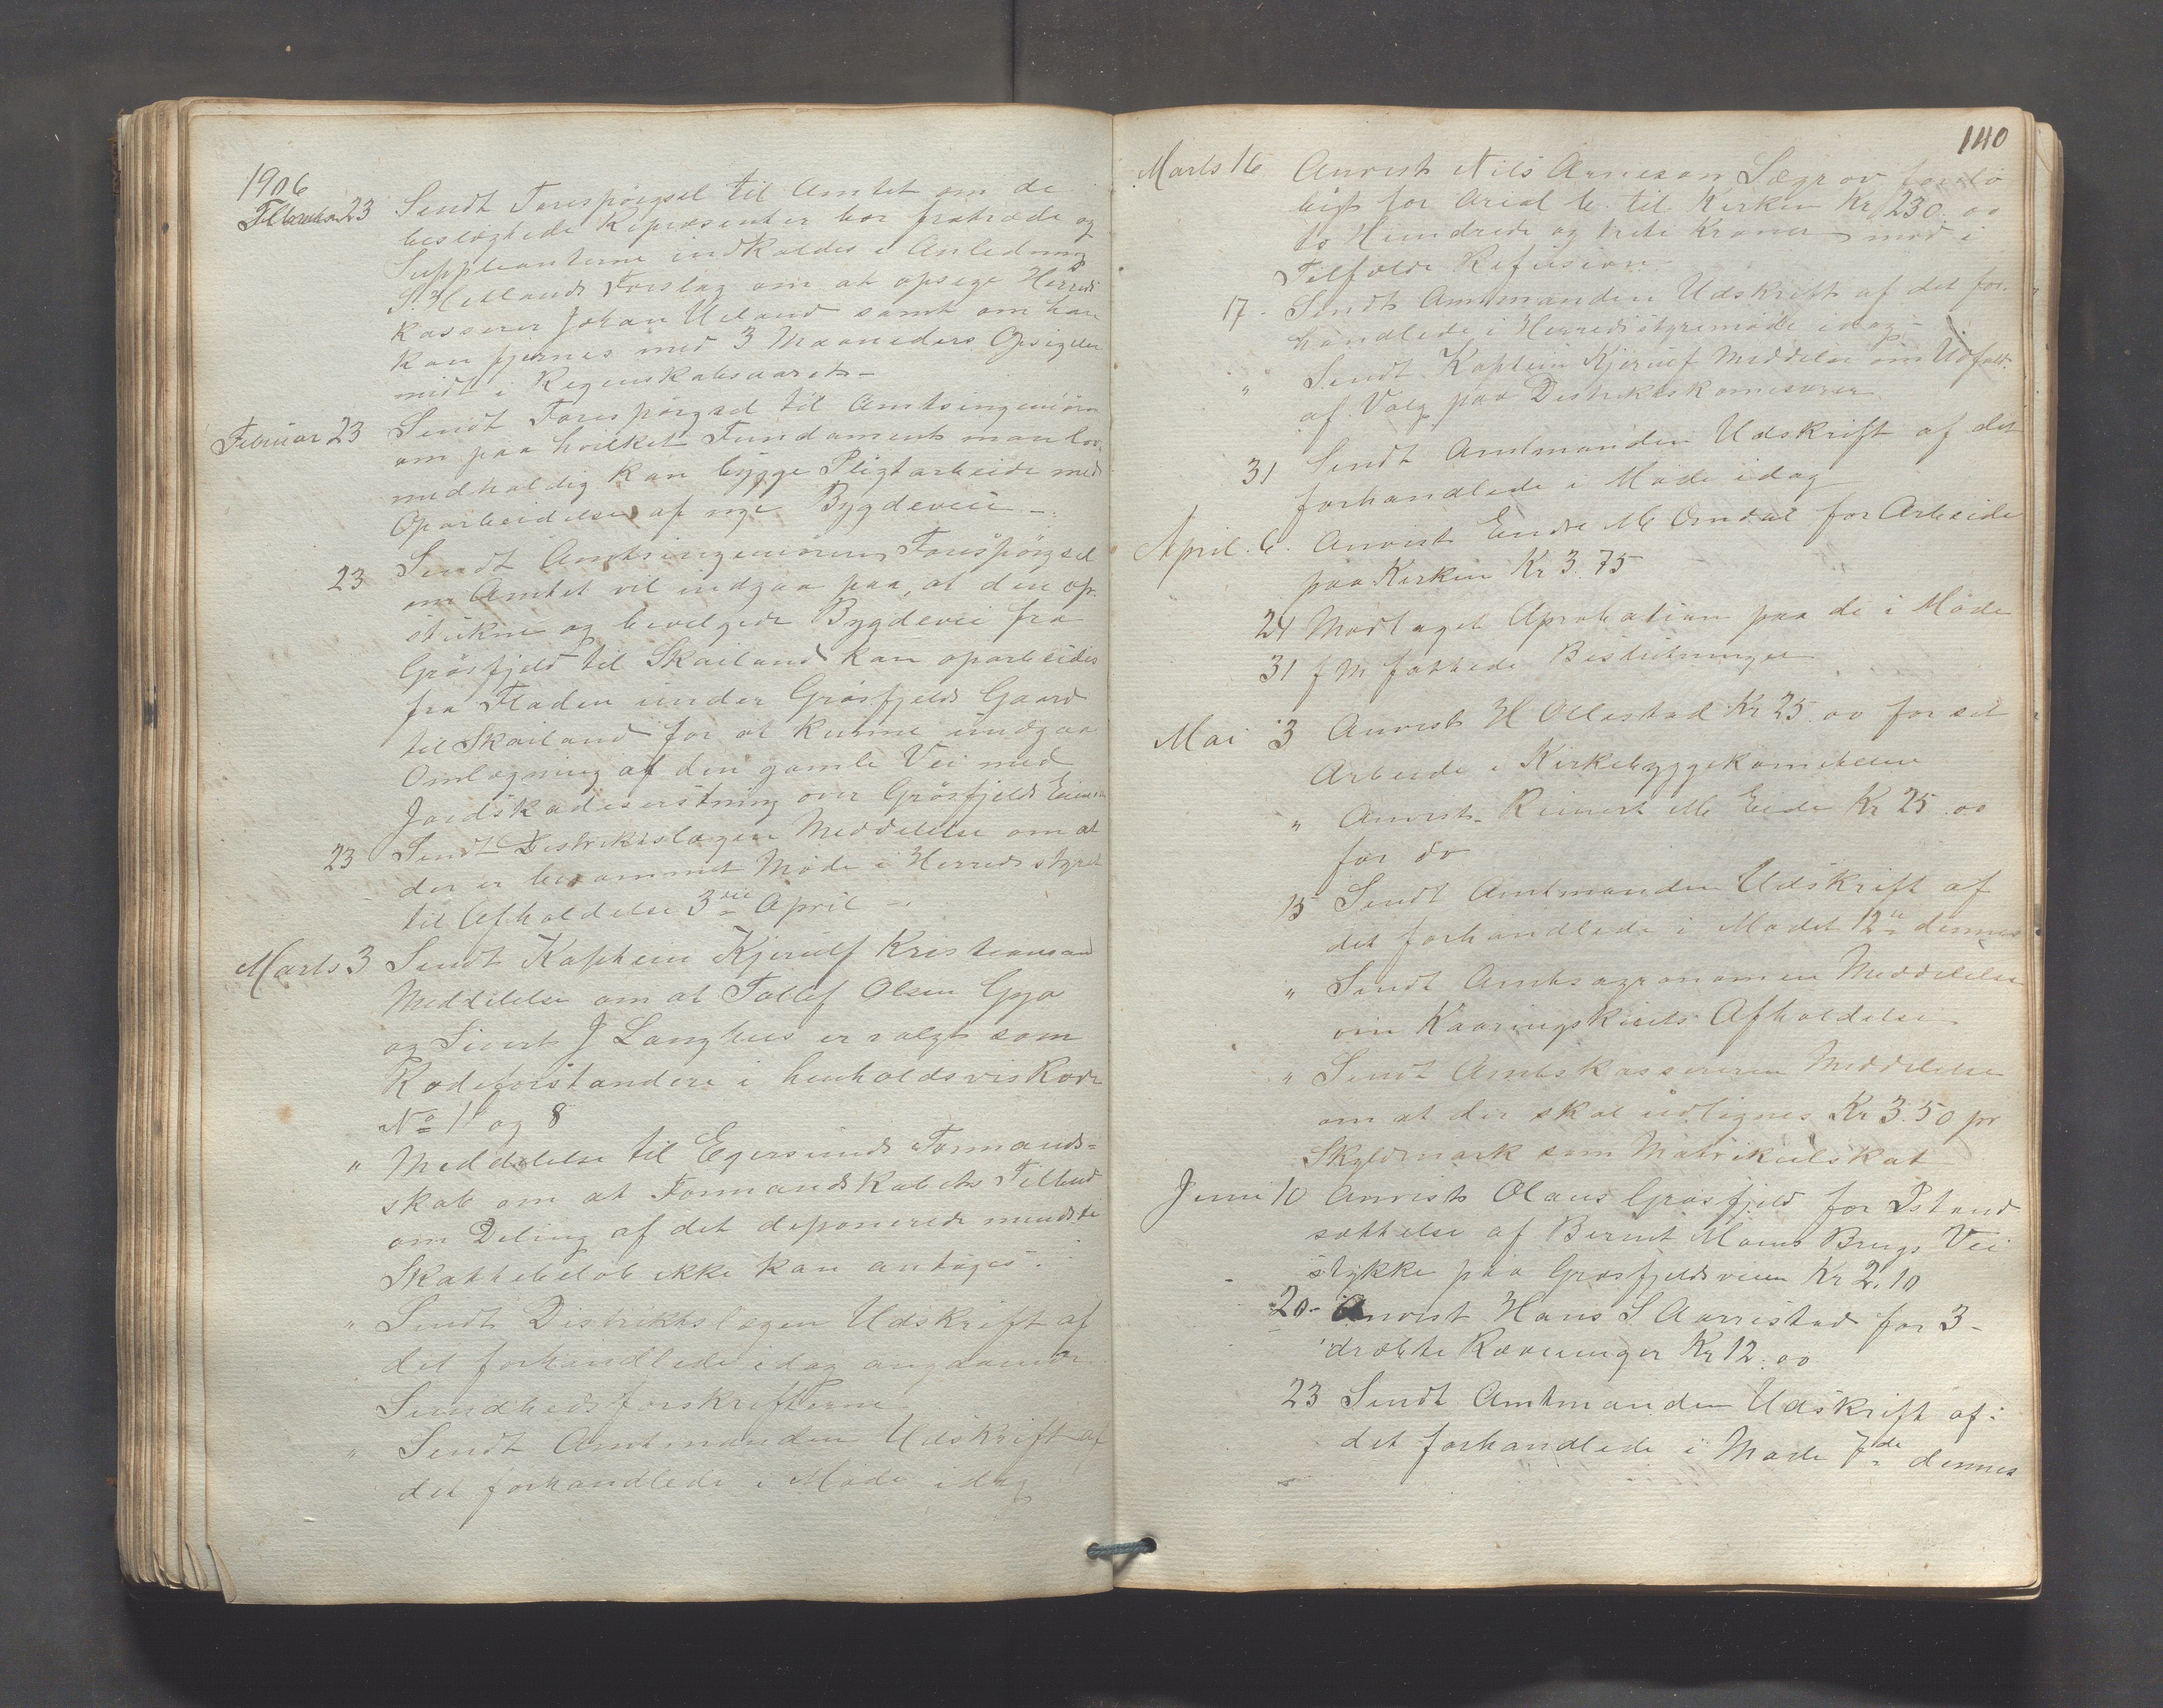 1906
Februar 23 Sendt Forespörgsel til Amtet om de
beslægtede Repræsenter bör fratræde og
Suppleanterne indkaldes i Anledning
S. Hetlands Forslag om at opsige Herreds
kasserer Johan Ueland samt om han
kan fjernes med 3 Maaneders Opsigelse
midt i Regnskabsaaret –
Februar 23 Sendt Forespörgsel til Amtsingeniören
om paa hvilket Fundament man lov
medholdig kan bygge Pligtarbeide med
Oparbeidelse af nye Bygdeveie –
23 Sendt Amtsingeniören Forespörgsel
om Amtet vil indgaa paa, at den op
stukne og bevilgede Bygdevei fra
Gräsfjeld til Skailand kan oparbeides
fra Fladen under Gräsfjelds Gaard
til Skailand for at kunne undgaa
Omlægning af den gamle Vei med
Jordskadeserstning over Gräsfjelds
23 Sendt Distriktslægen Meddelelse om at
der er berammet Möde i Herredsstyret
til Afholdelse 3die April –
Marts 3 Sendt Kaptein Kjerulf Kristiansand
Meddelelse om at Tollef Olsen Gya
og Sivert J Langhus er valgt som
Rodeforstandere i henholdsvis Rode
No 1 og 8
" Meddelelse til Egersunds Formands=
skab om at Formandskabets Tilbud
om Deling af det deponerede mindste
Skattebelöb ikke kan antages.
" Sendt Distriktslægen Udskrift af
det forhandlede idag angaaende
Sundhedsforskrifterne
" Sendt Amtmanden Udskrift af
det forhandlede i Möde idag
140
Marts 16 Anvist Nils Arneson Sægrov forelö
bigt for til Kirken Kr 230.00
to Hundrede og treti Kroner – mod i
Tilfælde Refusion
17 – Sendt Amtmanden Udskrift af det for-
handlede i Herredsstyremöde idag –
" Sendt Kaptein Kjerulf Meddelse om Udfald
af Valg paa Distriktskomisærer
31 Sendt Amtmanden Udskrift af det
forhandlede i Möde idag
April 6. Anvist Endre M Omdal for Arbeide
paa Kirken Kr 3.75
24 Modtaget Aprobation paa de i Möde
31 f M fattede Beslutninger
Mai 3 Anvist H Ollestad Kr 25.00 for sit
Arbeide i Kirkebyggekomiteen
" Anvist Reinert M Eide Kr 25.00
for do
15 Sendt Amtmanden Udskrift af
det forhandlede i Mödet 12te dennes
" Sendt Amtsagronomen Meddelelse
om Kaaringskuets Afholdelse
" Sendt Amtskassereren Meddelelse
om at der skal udlignes Kr 3.50 pr
Skyldmark som Matrikulskat
Juni 10 Anvist Olaus Gräsfjeld for Istand
sættelse af Bernt Moens Brugs Vei
stykke paa Gräsfjeldsveien Kr 2.10
20 – Anvist Hans S Aarrestad for 3 –
dræbte Ræveunger Kr 12.00
23 Sendt Amtmanden Udskrift af
det forhandlede i Möde 7de dennes